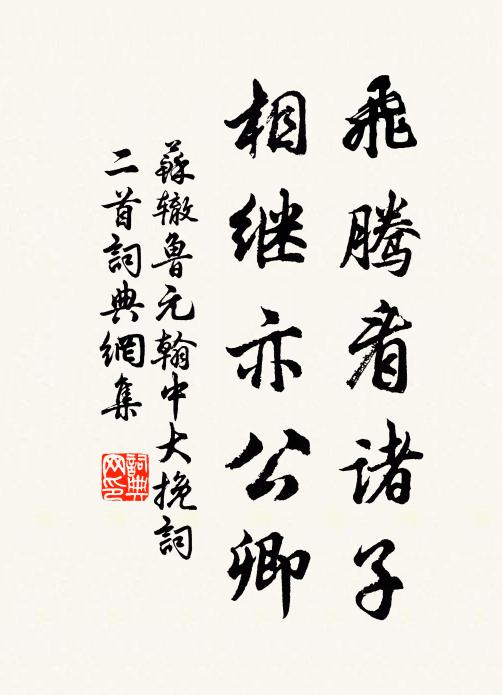 飛腾看诸子
相继亦公卿
蘇辙魯元翰中大挽詞
二首詞典網集
詞典网印